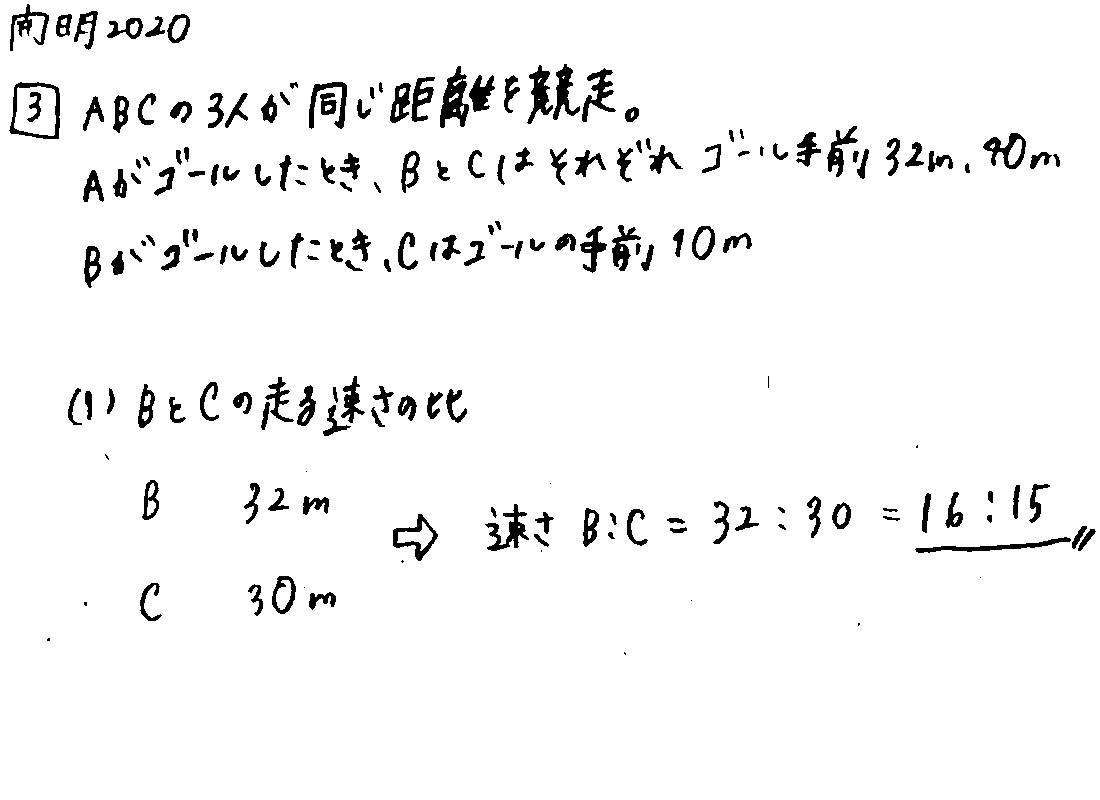 開明2020
3 ABCの3人が同じ距離を競走。
Aがゴールしたとき、BとCはそれぞれゴール手前32m、40m
Bがゴールしたとき、Cはゴールの手前10m
(1) BとCの走る速さの比
B 32m
⇨ 速さ B:C = 32:30 = 16:15
C 30m